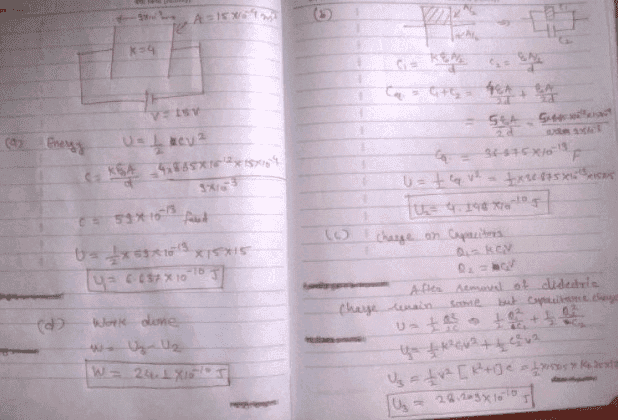 A = 15 × 10⁻⁴ m²
K = 4
V = 15V
(a) Energy U = ½ CV²
C = Kε₀A / d = 4×8.85×10⁻¹²×15×10⁻⁴ / 3×10⁻³
C = 59×10⁻¹³ farad
U = ½ × 59×10⁻¹³ × 15×15
U₁ = 6.637×10⁻¹⁰ J
(d) Work done
W = U₃ - U₂
W = 24.1×10⁻¹⁰ J
(b) A/₂
A/₂
C₁
C₂
C₁ = Kε₀A/₂ / d C₂ = ε₀A/₂ / d
Cq. = C₁+C₂ = 4ε₀A / 2d + ε₀A / 2d
= 5ε₀A / 2d
Cq. = 36.875×10⁻¹³ F
U = ½ Cq V² = ½×36.875×10⁻¹³×15×15
U₂ = 4.148×10⁻¹⁰ J
(c) Charge on Capacitors
Q₁ = KCV
Q₂ =
After removal of dielectric
Charge remain same but Capacitance change
U = ½
U₃ = ½ K²CV² + ½
U₃ = ½ V² [K²+1] C
U₃ = 28.203×10⁻¹⁰ J